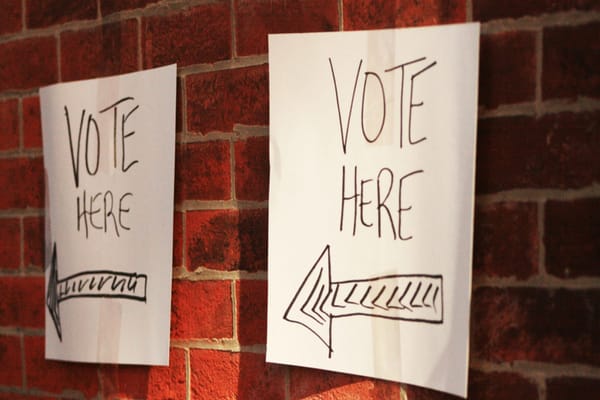 VOTE
HERE
VOTE
HERE